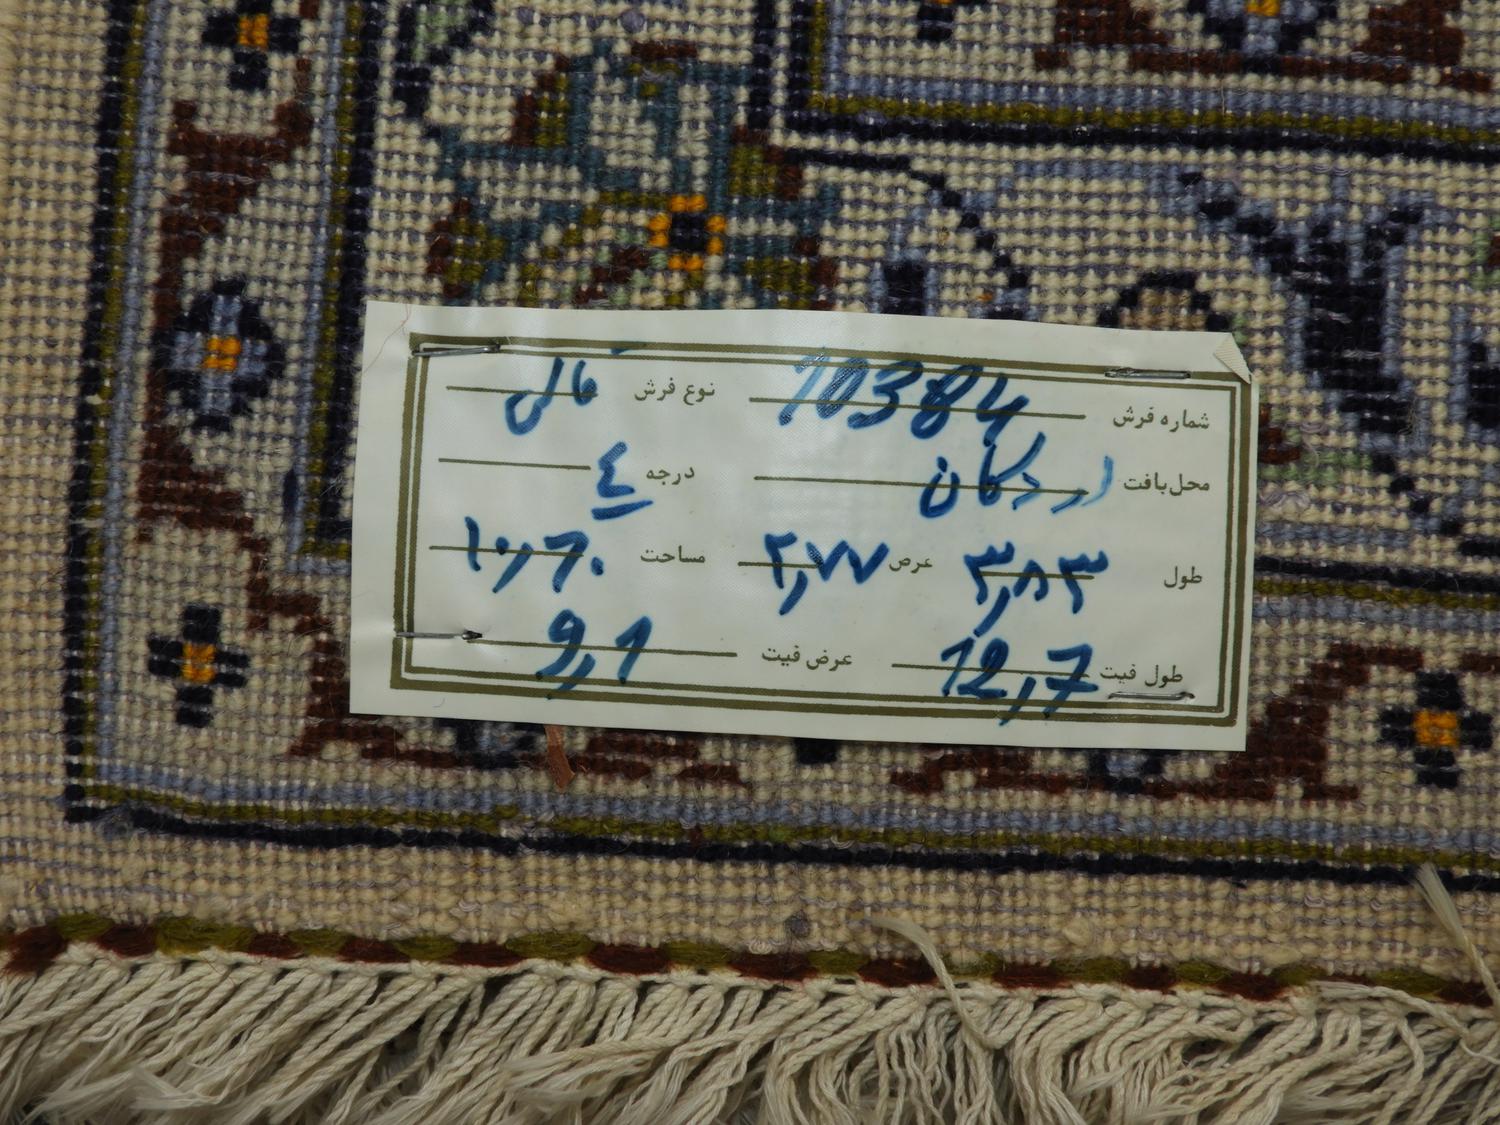 شماره فرش 10384 نوع فرش قالی
محل بافت اردکان درجه ٤
طول ۳,۸۳ عرض ۲,۷۷ مساحت ۱۰,۶۰
طول فیت 12,7 عرض فیت 9,1